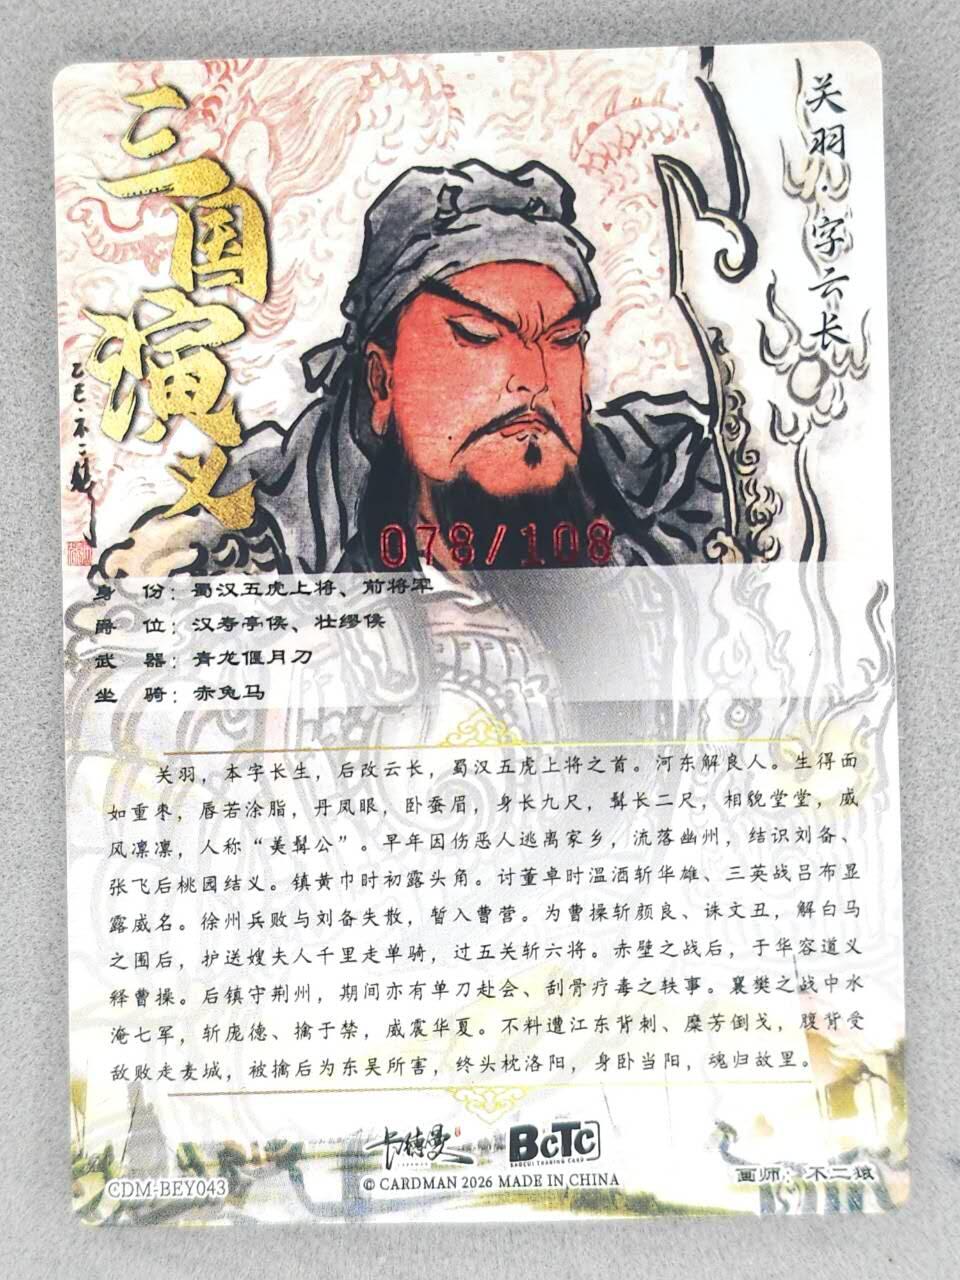 三国演义
关羽·字云长
乙巳·不二
078/108
身 份：蜀汉五虎上将、前将军
爵 位：汉寿亭侯、壮缪侯
武 器：青龙偃月刀
坐 骑：赤兔马
关羽，本字长生，后改云长，蜀汉五虎上将之首。河东解良人。生得面
如重枣，唇若涂脂，丹凤眼，卧蚕眉，身长九尺，髯长二尺，相貌堂堂，威
风凛凛，人称“美髯公”。早年因伤恶人逃离家乡，流落幽州，结识刘备、
张飞后桃园结义。镇黄巾时初露头角。讨董卓时温酒斩华雄、三英战吕布显
露威名。徐州兵败与刘备失散，暂入曹营。为曹操斩颜良、诛文丑，解白马
之围后，护送嫂夫人千里走单骑，过五关斩六将。赤壁之战后，于华容道义
释曹操。后镇守荆州，期间亦有单刀赴会、刮骨疗毒之轶事。襄樊之战中水
淹七军，斩庞德、擒于禁，威震华夏。不料遭江东背刺、糜芳倒戈，腹背受
敌败走麦城，被擒后为东吴所害，终头枕洛阳，身卧当阳，魂归故里。
卡德曼
CARDMAN
BCTC
BAOCUI TRADING CARD
© CARDMAN 2026 MADE IN CHINA
CDM-BEY043
画师：不二